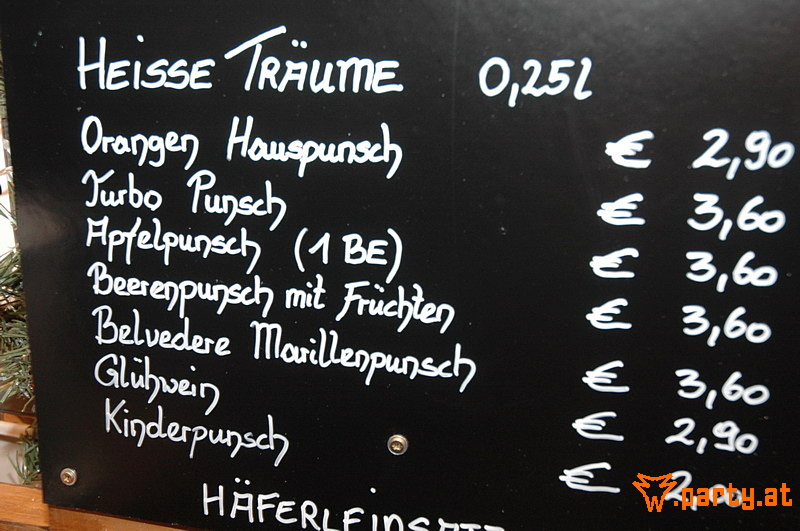 HEISSE TRÄUME 0,25l
Orangen Hauspunsch € 2,90
Turbo Punsch € 3,60
Apfelpunsch (1 BE) € 3,60
Beerenpunsch mit Früchten € 3,60
Belvedere Marillenpunsch € 3,60
Glühwein € 2,90
Kinderpunsch € 2,00
HÄFERLEINSATZ
party.at